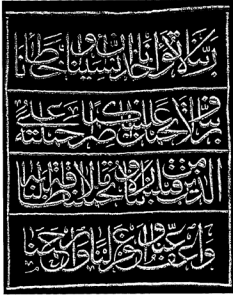 ربنا لا تؤاخذنا إن نسينا أو أخطأنا
ربنا ولا تحمل علينا إصرا كما حملته على
الذين من قبلنا ربنا ولا تحملنا ما لا طاقة لنا به
واعف عنا واغفر لنا وارحمنا